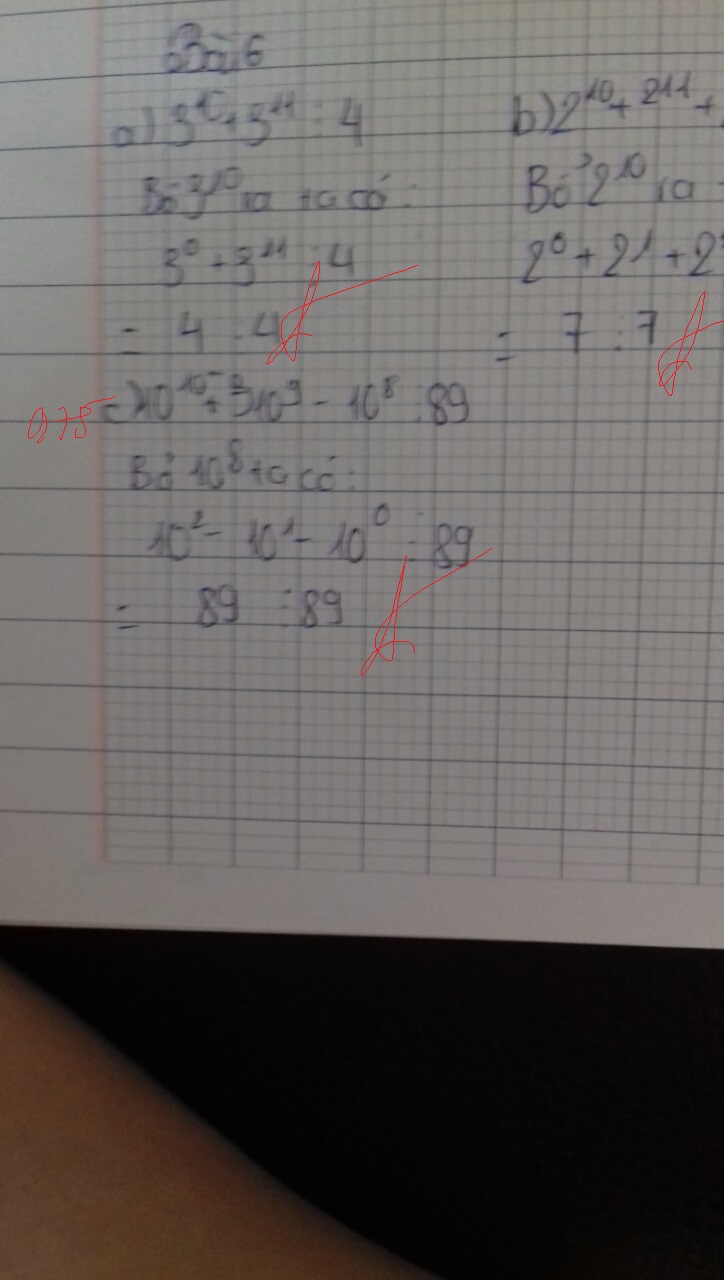 Bài 6
a) 3¹⁰ + 3¹¹ ⋮ 4
Bỏ 3¹⁰ ra ta có:
3⁰ + 3¹¹ ⋮ 4
= 4 ⋮ 4
b) 2¹⁰ + 2¹¹ +
Bỏ 2¹⁰ ra
2⁰ + 2¹ + 2
= 7 ⋮ 7
0,75
10⁹ - 10⁸ ⋮ 89
Bỏ 10⁸ ta có:
10² - 10¹ - 10⁰ ⋮ 89
= 89 ⋮ 89